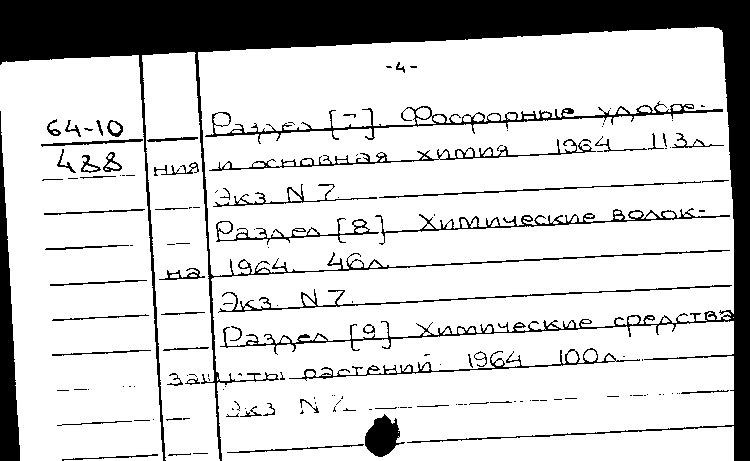 -4-
64-10 Раздел [7]. Фосфорные удобре-
488 ния и основная химия 1964 113л.
Экз. N 7
Раздел [8] Химические волок-
на. 1964. 46л.
Экз. N 7.
Раздел [9] Химические средства
защиты растений. 1964 100л.
Экз N 7.